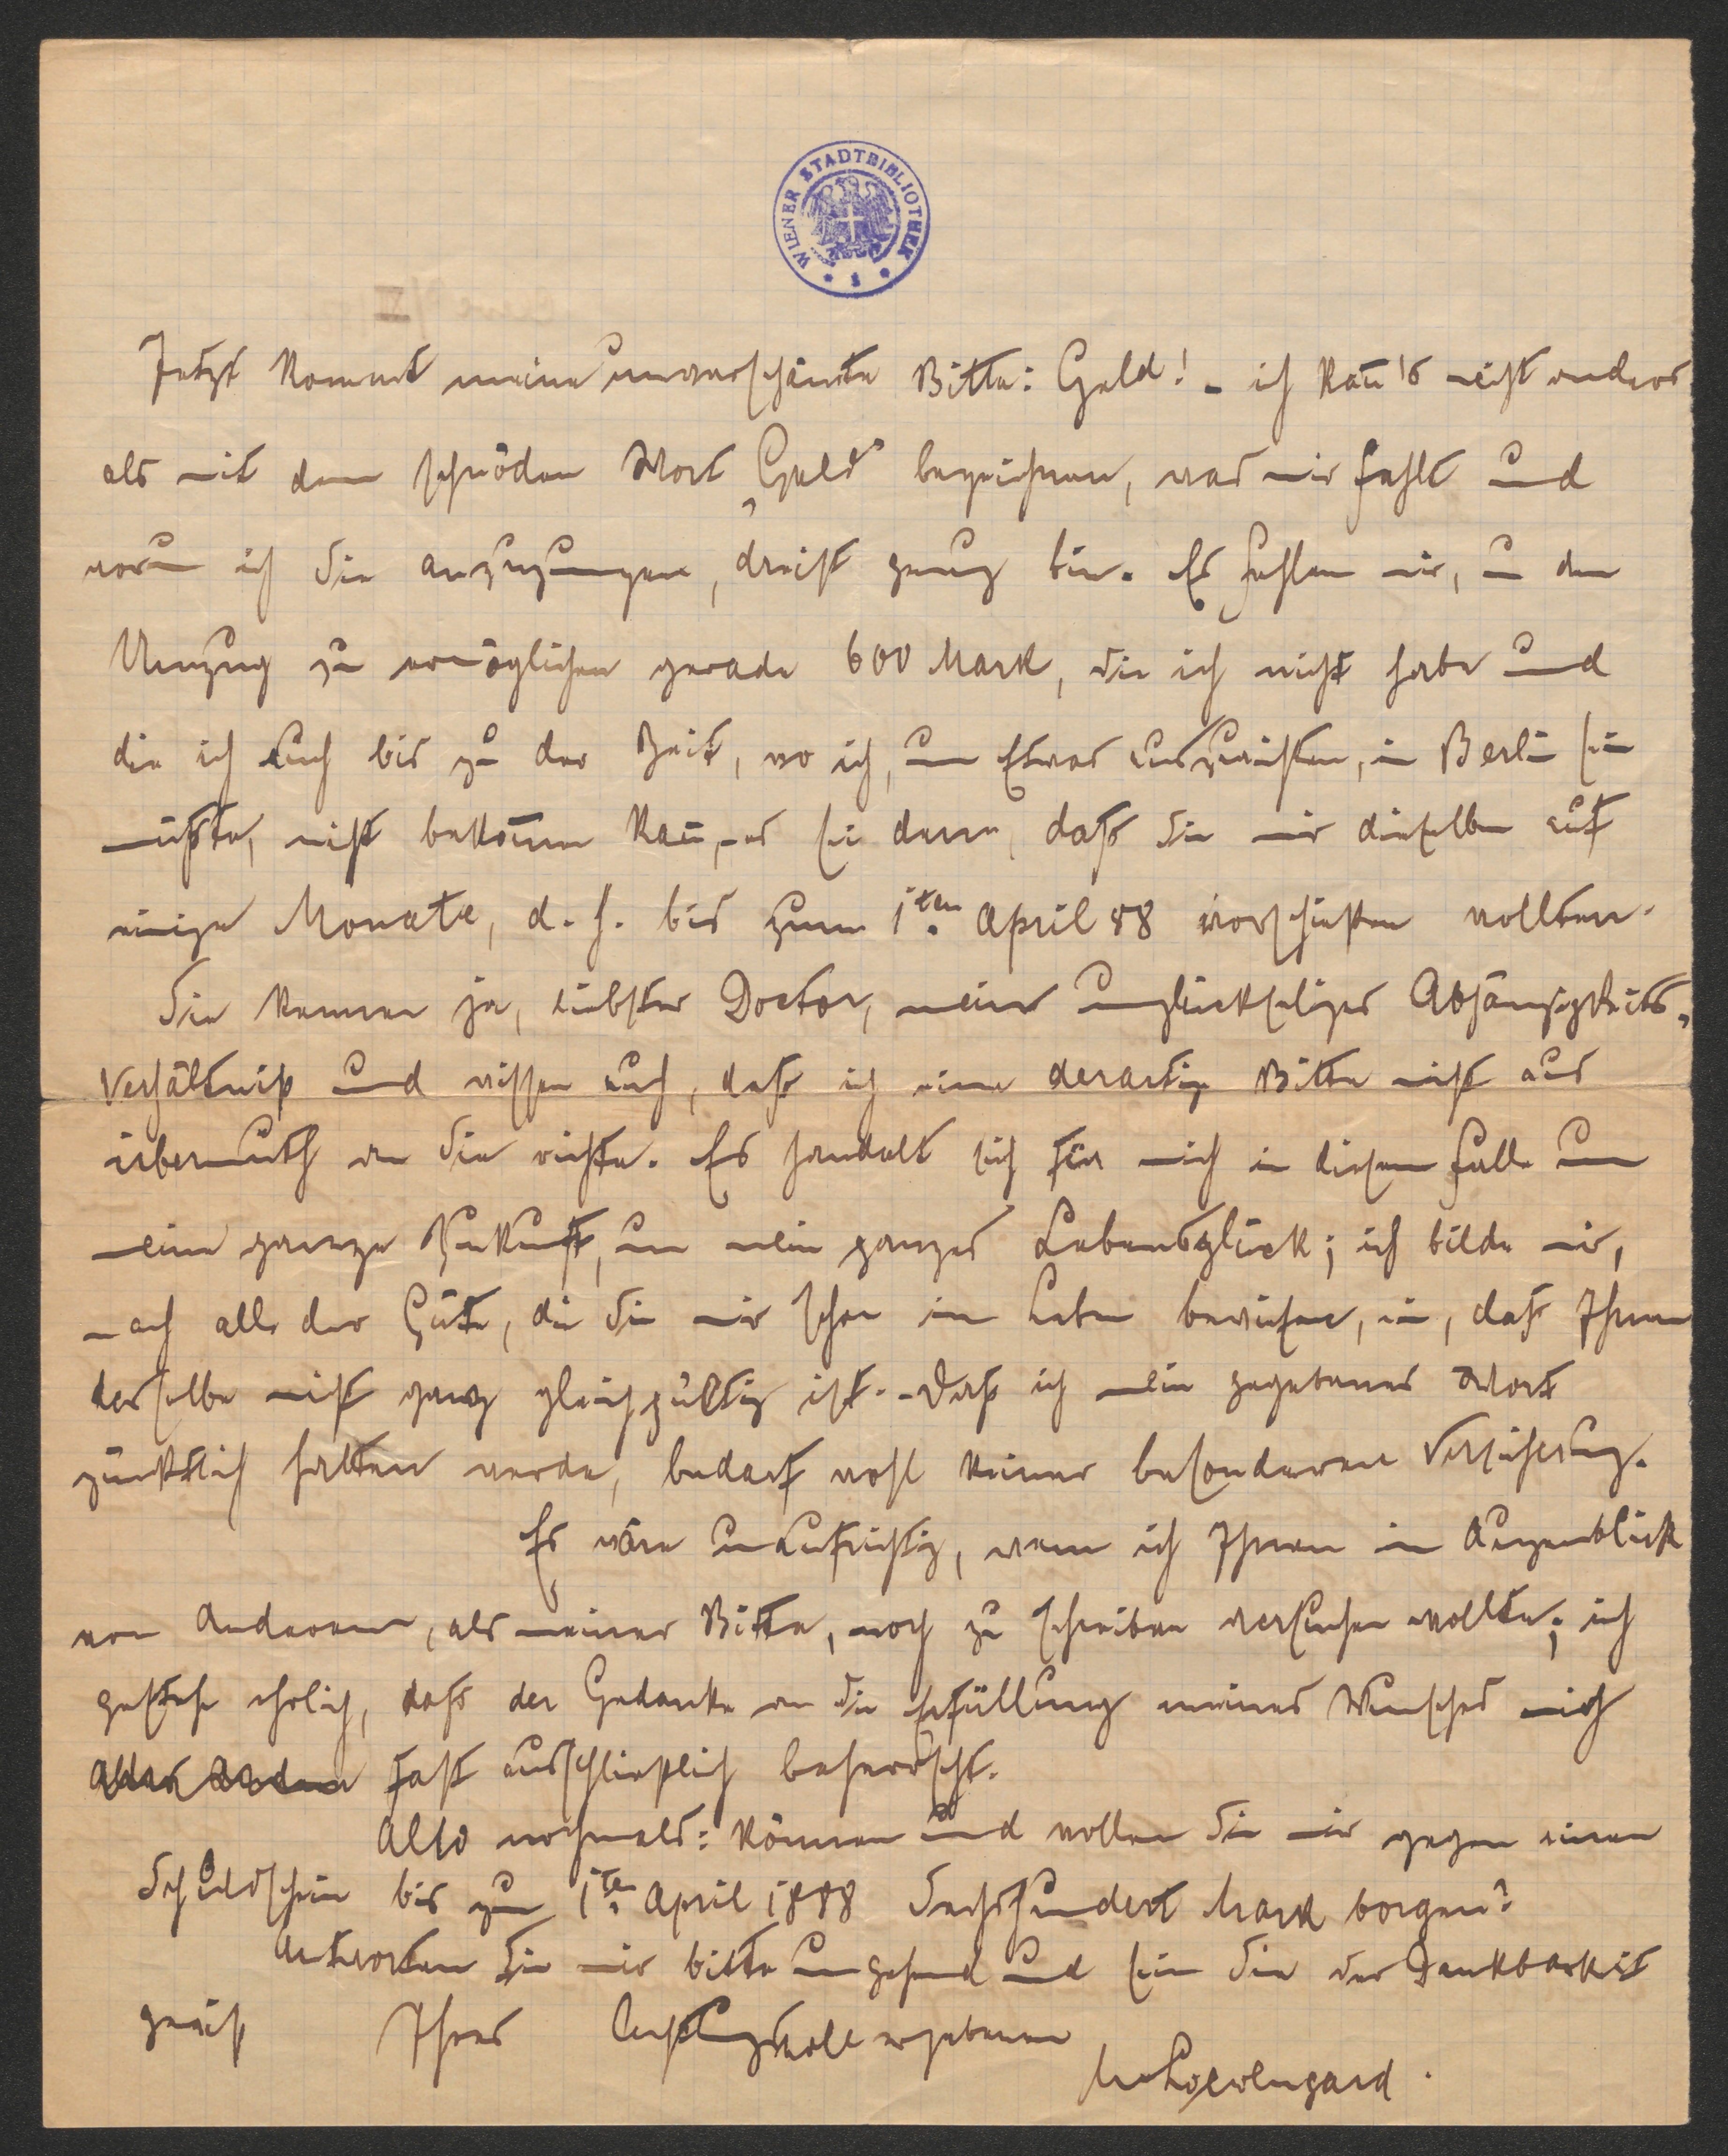 WIENER STADTBIBLIOTHEK
Jetzt kommt meine unverschämte Bitte: Geld! – ich kañ's nicht anders
als mit dem schnöden Wort „Geld" bezeichnen, was mir fehlt und
worum ich Sie anzupumpen, dreist genug bin. Es fehlen mir, um den
Umzug zu ermöglichen gerade 600 Mark, die ich nicht habe und
die ich auch bis zu der Zeit, wo ich, um Etwas auszurichten, in Berlin sein
müßte, nicht bekom̄en kañ, es sei denn, daß Sie mir dieselben auf
einige Monate, d. h. bis zum 1ten April 88 vorschießen wollten.
Sie kennen ja, liebster Doctor, mein unglückseliges Abhängigkeits-
Verhältniß und wissen auch, daß ich eine derartige Bitte nicht aus
Übermuth an Sie richte. Es handelt sich für mich in diesem Falle um
meine ganze Zukunft, um mein ganzes Lebensglück; ich bilde mir,
nach all der Güte, die Sie mir schon im Leben bewiesen, ein, daß Ihnen
derselbe nicht ganz gleichgültig ist. – Daß ich mein gegebenes Wort
pünktlich halten werde, bedarf wohl keiner besonderen Versicherung.
Es wäre unaufrichtig, wenn ich Ihnen im Augenblick
von Anderem, als meiner Bitte, noch zu schreiben versuchen wollte; ich
gestehe ehrlich, daß der Gedanke an die Erfüllung meines Wunsches mich
fast ausschließlich beherrscht.
Also nochmals: Können und wollen Sie mir gegen einen
Schuldschein bis zum 1ten April 1888 Sechshundert Mark borgen?
Antworten Sie mir bitte umgehend und sein Sie der Dankbarkeit
gewiß Ihres hochachtungsvoll ergebenen
M Loewengard.